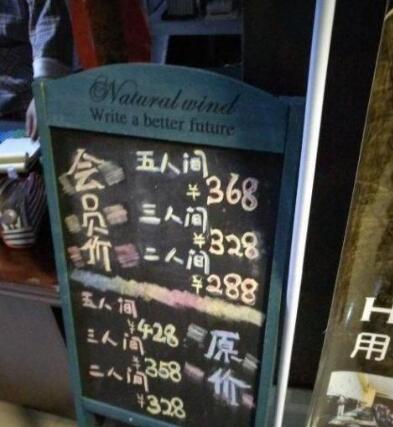 Natural wind
Write a better future
会员价
五人间
¥368
三人间
¥328
二人间
¥288
五人间
¥428
三人间
¥358
二人间
¥328
原价
H
用